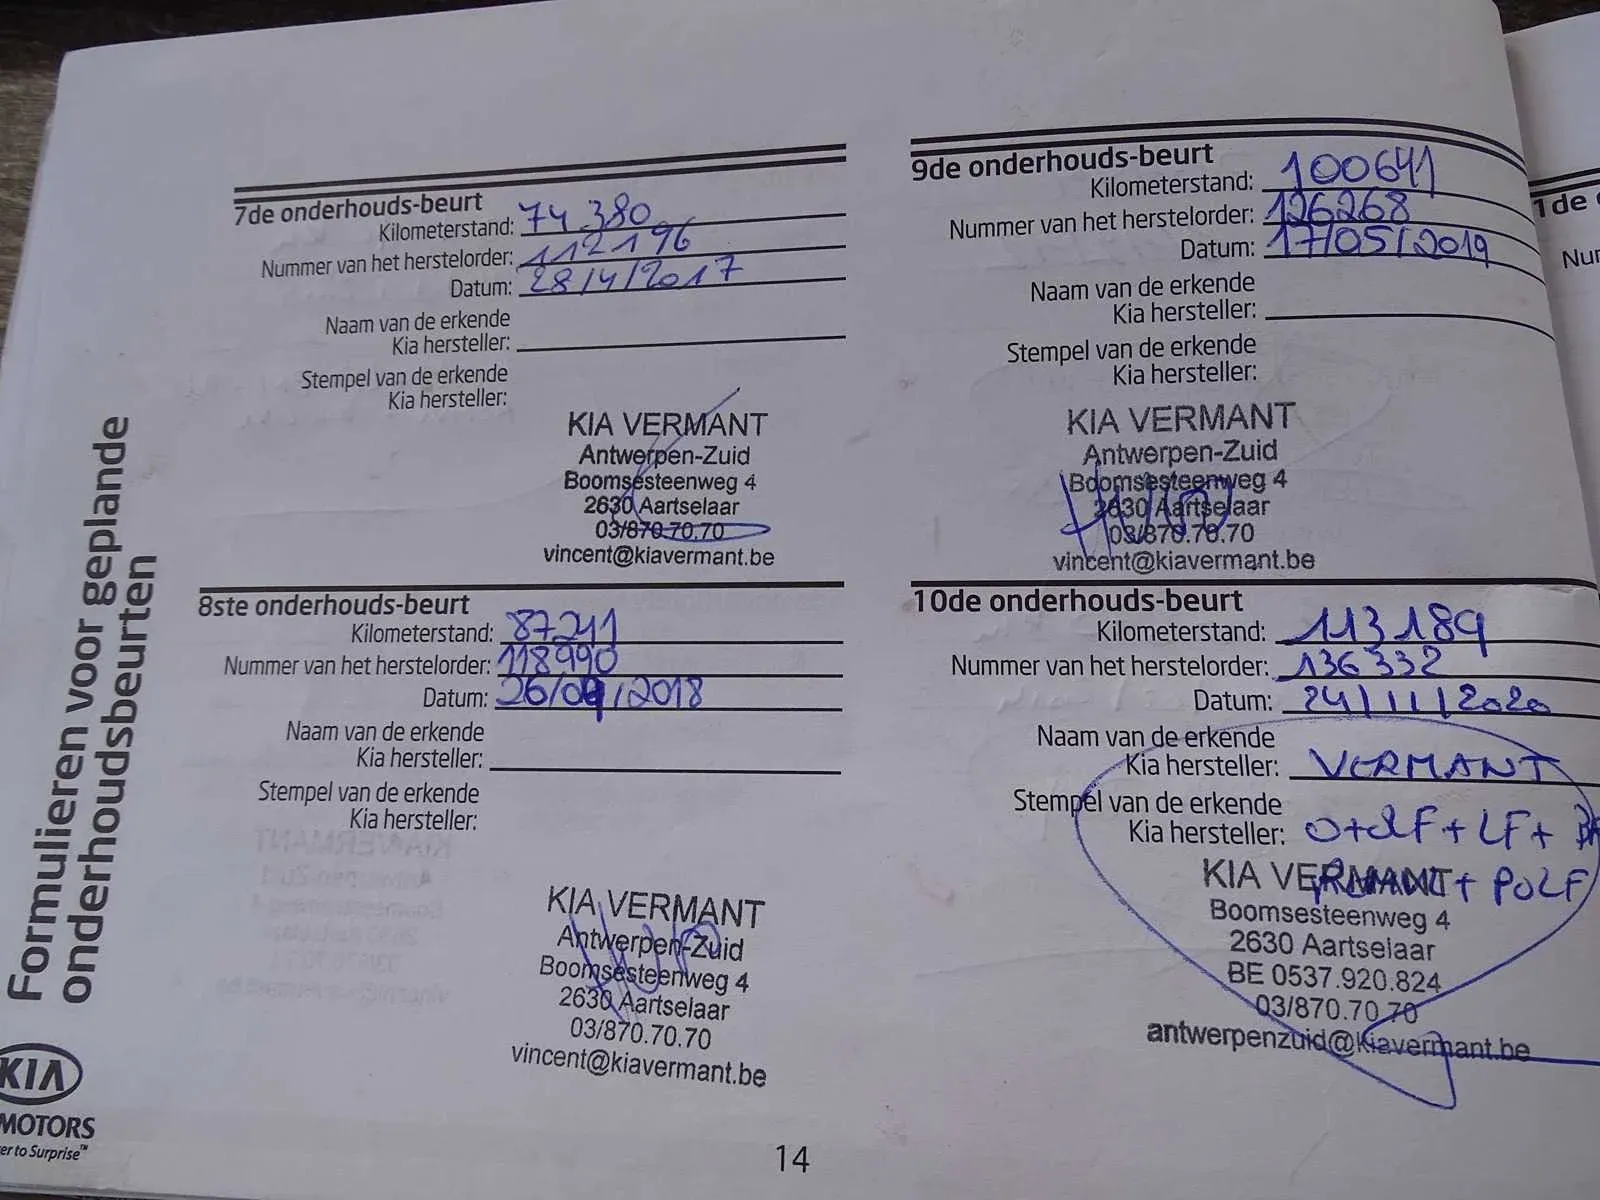 Formulieren voor geplande
onderhoudsbeurten
7de onderhouds-beurt
Kilometerstand: 74 380
Nummer van het herstelorder: 112196
Datum: 28/4/2017
Naam van de erkende
Kia hersteller:
Stempel van de erkende
Kia hersteller:
KIA VERMANT
Antwerpen-Zuid
Boomsesteenweg 4
2630 Aartselaar
03/870.70.70
vincent@kiavermant.be
8ste onderhouds-beurt
Kilometerstand: 87241
Nummer van het herstelorder: 118990
Datum: 26/04/2018
Naam van de erkende
Kia hersteller:
Stempel van de erkende
Kia hersteller:
KIA VERMANT
Antwerpen-Zuid
Boomsesteenweg 4
2630 Aartselaar
03/870.70.70
vincent@kiavermant.be
9de onderhouds-beurt
Kilometerstand: 100641
Nummer van het herstelorder: 126268
Datum: 17/05/2019
Naam van de erkende
Kia hersteller:
Stempel van de erkende
Kia hersteller:
KIA VERMANT
Antwerpen-Zuid
Boomsesteenweg 4
2630 Aartselaar
03/870.70.70
vincent@kiavermant.be
10de onderhouds-beurt
Kilometerstand: 113189
Nummer van het herstelorder: 136332
Datum: 24/11/2020
Naam van de erkende
Kia hersteller: VERMANT
Stempel van de erkende
Kia hersteller: O+LF+LF+
KIA VERMANT + POLF
Boomsesteenweg 4
2630 Aartselaar
BE 0537.920.824
03/870.70.70
antwerpenzuid@kiavermant.be
1de
KIA
MOTORS
er to Surprise™
14